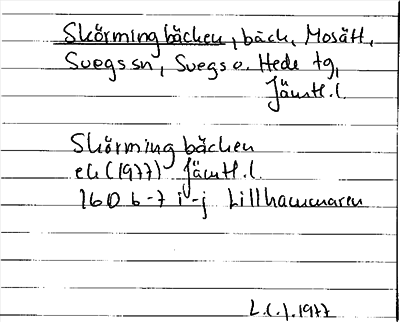 Skörmingbäcken, bäck, Mosätt,
Svegs sn, Svegs o. Hede tg,
Jämtl. l.
Skörmingbäcken
ek (1977) Jämtl. l.
16D 6-7 i-j Lillhammaren
L.C.J. 1977